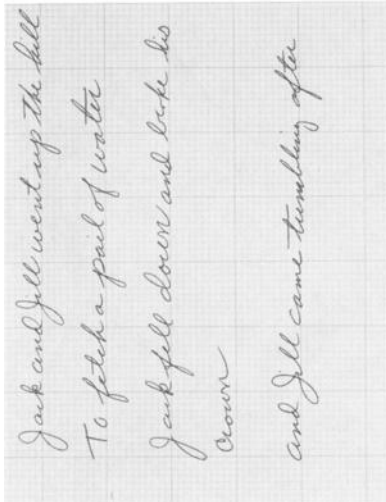 Jack and Jill went up the hill
To fetch a pail of water
Jack fell down and broke his
crown
and Jill came tumbling after